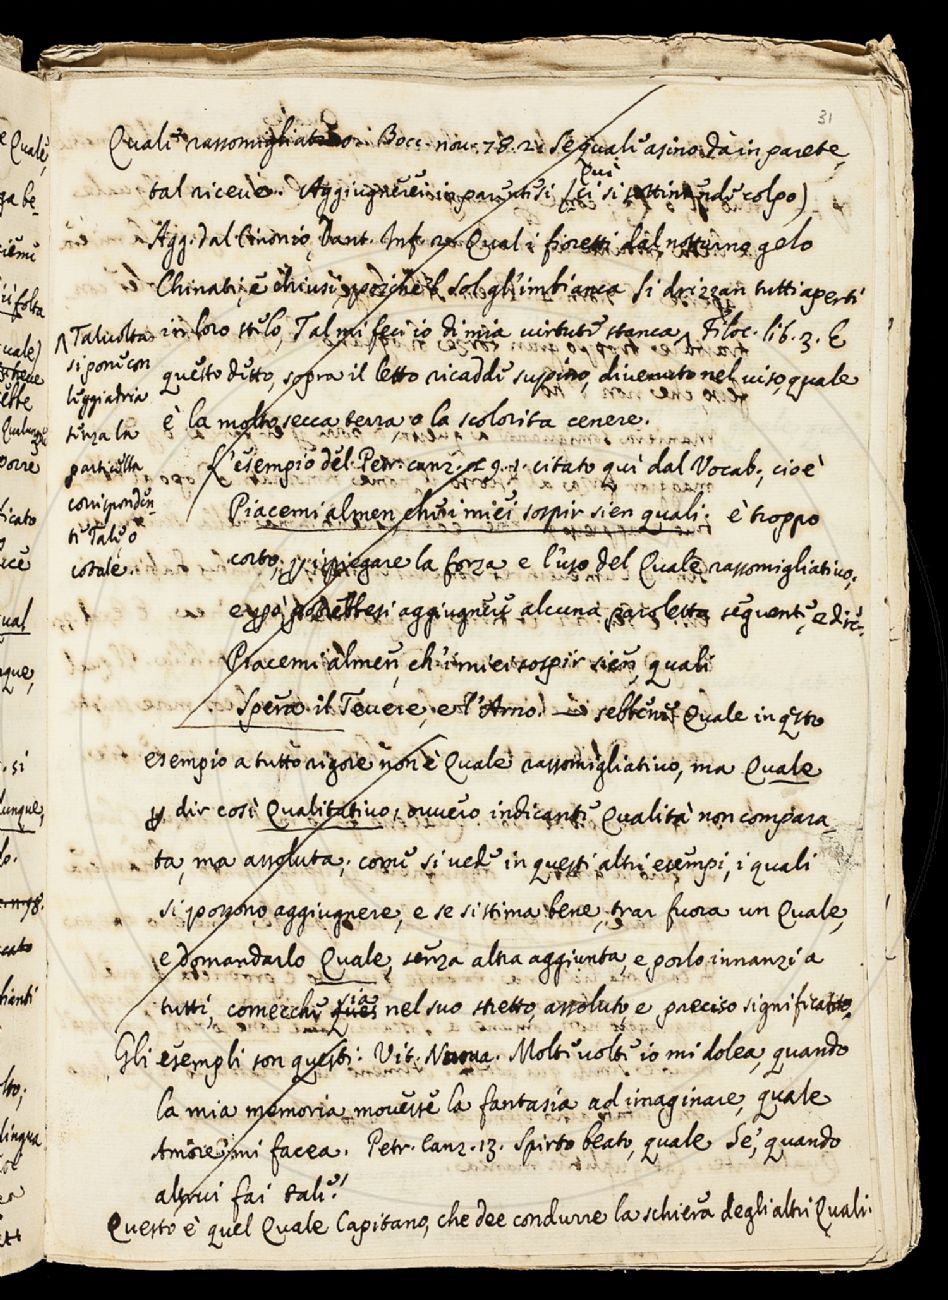 31
Quale rassomigliativo. Bocc. nov. 78. 2. Se quale asino dà in parete,
tal riceve. Aggiugnerei in parentesi (Qui ci si sottintende colpo)
Agg. dal Cinonio, Dant. Inf. 2. Qual i fioretti dal notturno gelo
Chinati, e chiusi, poichè 'l Sol gl'imbianca Si drizzan tutti aperti
in loro stelo, Tal mi feci io di mia virtute stanca. ^ Filoc. lib. 3. E
questo detto, sopra il letto ricadde supino, divenuto nel viso, quale
è la molto secca terra o la scolorita cenere.
^ Talvolta
si pone con
leggiadria
senza la
particella
corrisponden-
te Tale o
cotale.
L'esempio del Petr. canz. citato quì dal Vocab., cioè
Piacemi almen, che i miei sospir sien quali. è troppo
corto, per ispiegare la forza e l'uso del Quale rassomigliativo;
e però potrebbesi aggiugnere alcuna paroletta seguente, e dire.
Piacemi almen, ch'i miei sospir sien, quali
Spera il Tevere, e l'Arno. sebbene Quale in qsto
esempio a tutto rigore non è Quale rassomigliativo, ma Quale
p dir così Qualitativo, ovvero indicante Qualità non compara
ta, ma assoluta; come si vede in questi altri esempi, i quali
si possono aggiugnere, e se si stima bene, trar fuora un Quale,
e domandarlo Quale, senza altra aggiunta, e porlo innanzi a
tutti, comecchè sia nel suo stretto, assoluto e preciso significato.
Gli esempli son questi: Vit. Nuova. Molte volte io mi dolea, quando
la mia memoria movesse la fantasia ad imaginare, quale
Amore mi facea. Petr. Canz. 13. Spirto beato, quale Se', quando
altrui fai tale!
Questo è quel Quale Capitano, che dee condurre la schiera degli altri Quali.